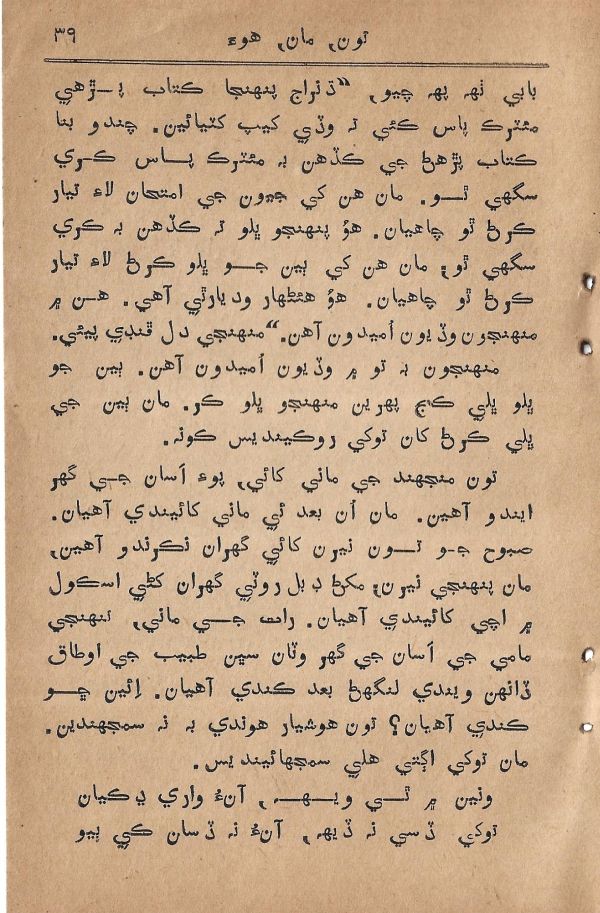 تون، مان، هوءَ ٣٩
بابي ٺهه پهه چيو، ”ڌنراج پنهنجا ڪتاب پـڙهي
مئٽرڪ پاس ڪئي ته وڏي کيپ کٽيائين. چندو بنا
ڪتاب پڙهڻ جي ڪڏهن به مئٽرڪ پـــاس ڪـري
سگهي ٿــو. مان هن کي جهون جي امتحان لاءِ تيار
ڪرڻ ٿو چاهيان. هوُ پنهنجو ڀلو ته ڪڏهن به ڪري
سگهي ٿو; مان هن کي ٻين جــو ڀلو ڪرڻ لاءِ تيار
ڪرڻ ٿو چاهيان. هوُ هڻهار وديارٿي آهي. هـن ۾
منهنجون وڏيون اُميدون آهن.“ منهنجي دل ٿڌي پيئي.
منهنجون به تو ۾ وڏيون اُميدون آهن. ٻين جو
ڀلو ڀلي ڪج پهرين منهنجو ڀلو ڪر. مان ٻين جي
ڀلي ڪرڻ کان توکي روڪينديس ڪونه.
تون منجهند جي ماني کائي، پوءِ اَسان جـي گهر
ايندو آهين. مان اُن بعد ئي ماني کائيندي آهيان.
صبوح جـو تــون نيرن کائي گهران نڪرندو آهين،
مان پنهنجي نيرن; مکڻ ڊبل روٽي گهران کڻي اسڪول
۾ اچي کائيندي آهيان. رات جـــي ماني، تنهنجي
مامي جي اَسان جي گهر وٽان سڀن طبيب جي اوطاق
ڏانهن ويندي لنگهڻ بعد ڪندي آهيان. اِئين ڇــو
ڪندي آهيان؟ تون هوشيار هوندي به نه سمجهندين.
مان توکي اڳتي هلي سمجهائينديس.
ونين ۾ ٿــي ويــهــه، آنءُ واري ڍڪيان
توکي ڏسي نه ڏيهه، آنءُ نه ڏسان ڪي ٻيو